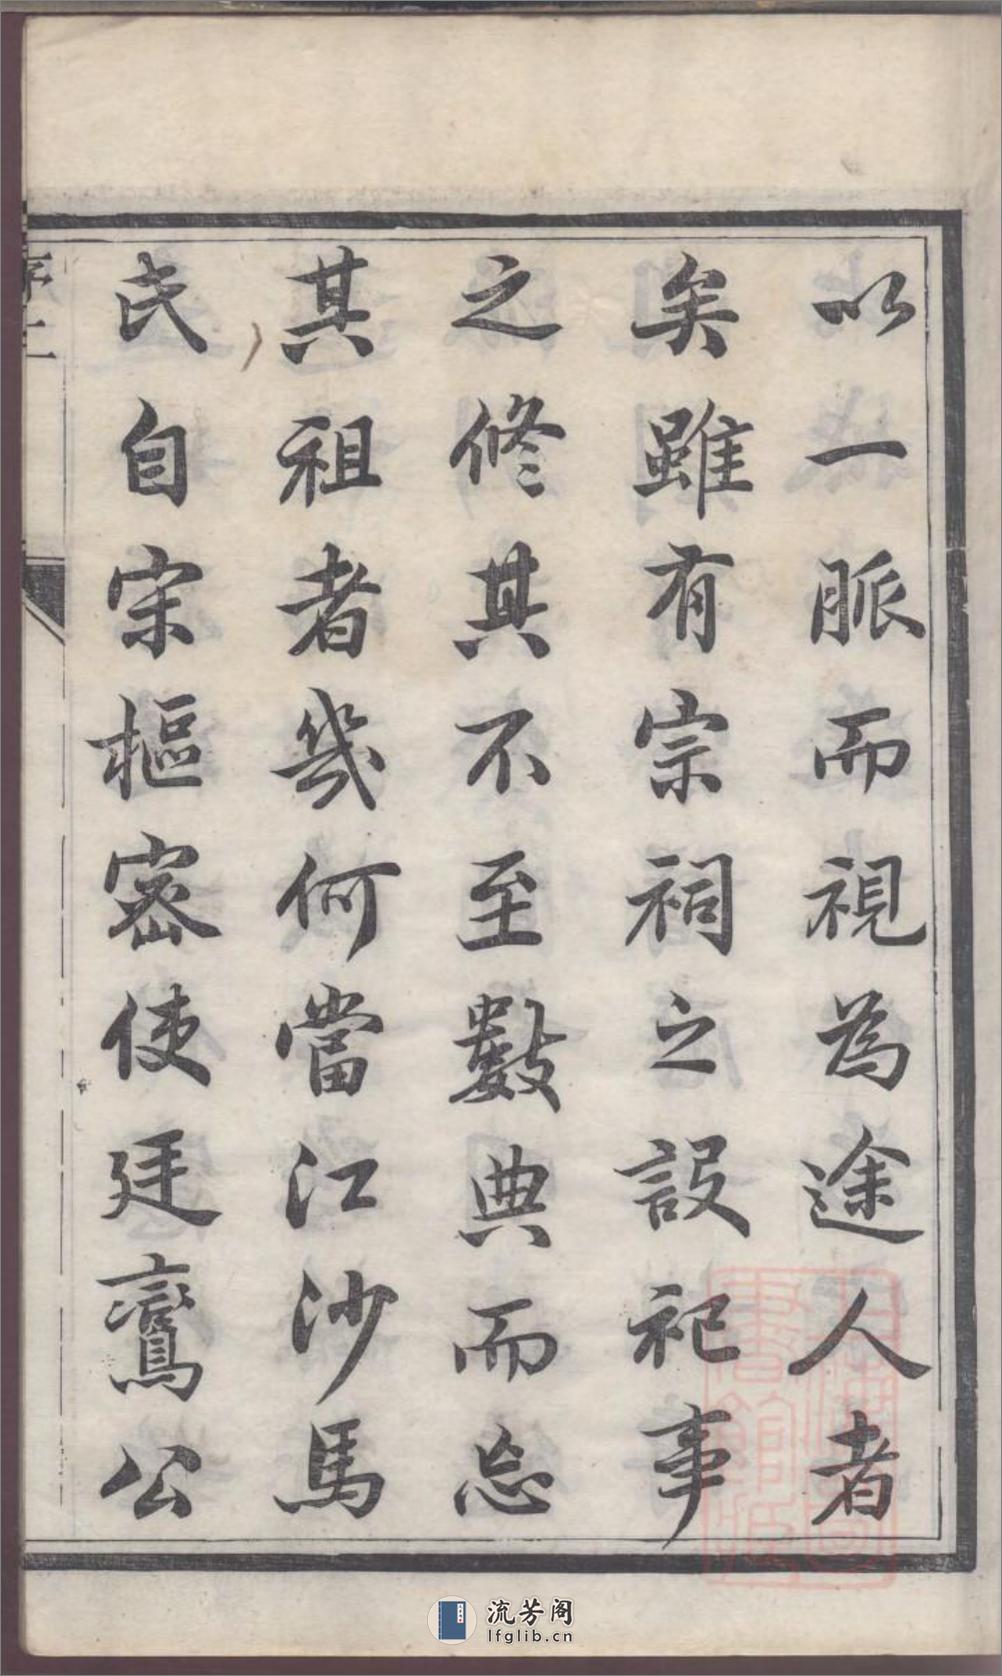 以一脈而視為途人者
矣雖有宗祠之設祀事
之修其不至數典而忘
其祖者幾何當江沙馬
氏自宋樞密使廷鸞公
序 二
流芳阁
lfglib.cn